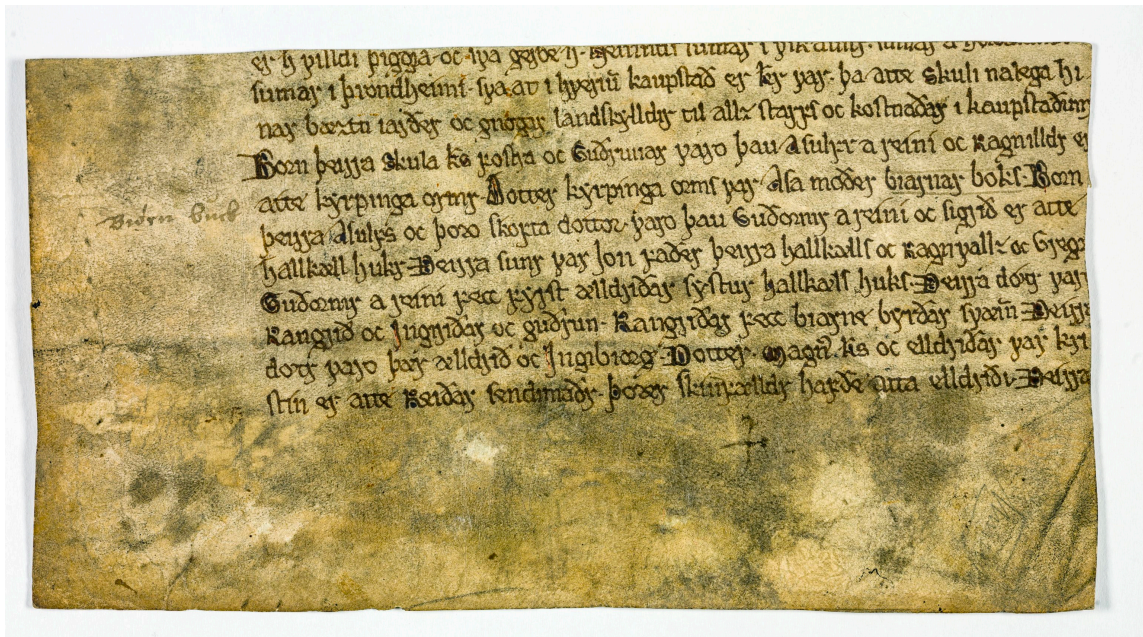 er h villdi þiggia oc sva gerðe h.
sumar i þrondheimi. sva at i hveriū kaupstað er kr var. þa atte Skuli nalega hi
nar bæztu iarðer oc gnogar landskylldir til allz starfs oc kostnaðar i kaupstaðunū
Born þeirra Skula ks fostra oc Guðrunar varo þau Asulfr a reini oc Ragnilldr er
atte kyrpinga ormr. Dotter kyrpinga orms var Asa moðer biarnar boks. Born
Biörn buck
þeirra Asulfs oc þoro skofta dottor. varo þau Guðormr a reini oc sigrið er atte
hallkæll hukr. Þeirra sunr var Jon faðer þeirra hallkæls oc Ragnvallz oc Gregor
Guðormr a reini fecc fyrst ælldriðar systur hallkæls huks. Þeirra dotr var
Rangrið oc Ingriðar oc guðrun. Rangriðar fecc biarne byrðar svæin. Þeirra
dotr varo þær ælldrið oc Ingibiærg. Dotter Magn. ks oc elldriðar var kri
stin er atte Reiðar sendimaðr. þorer skinfælldr hafðe atta elldriði. Þeirra